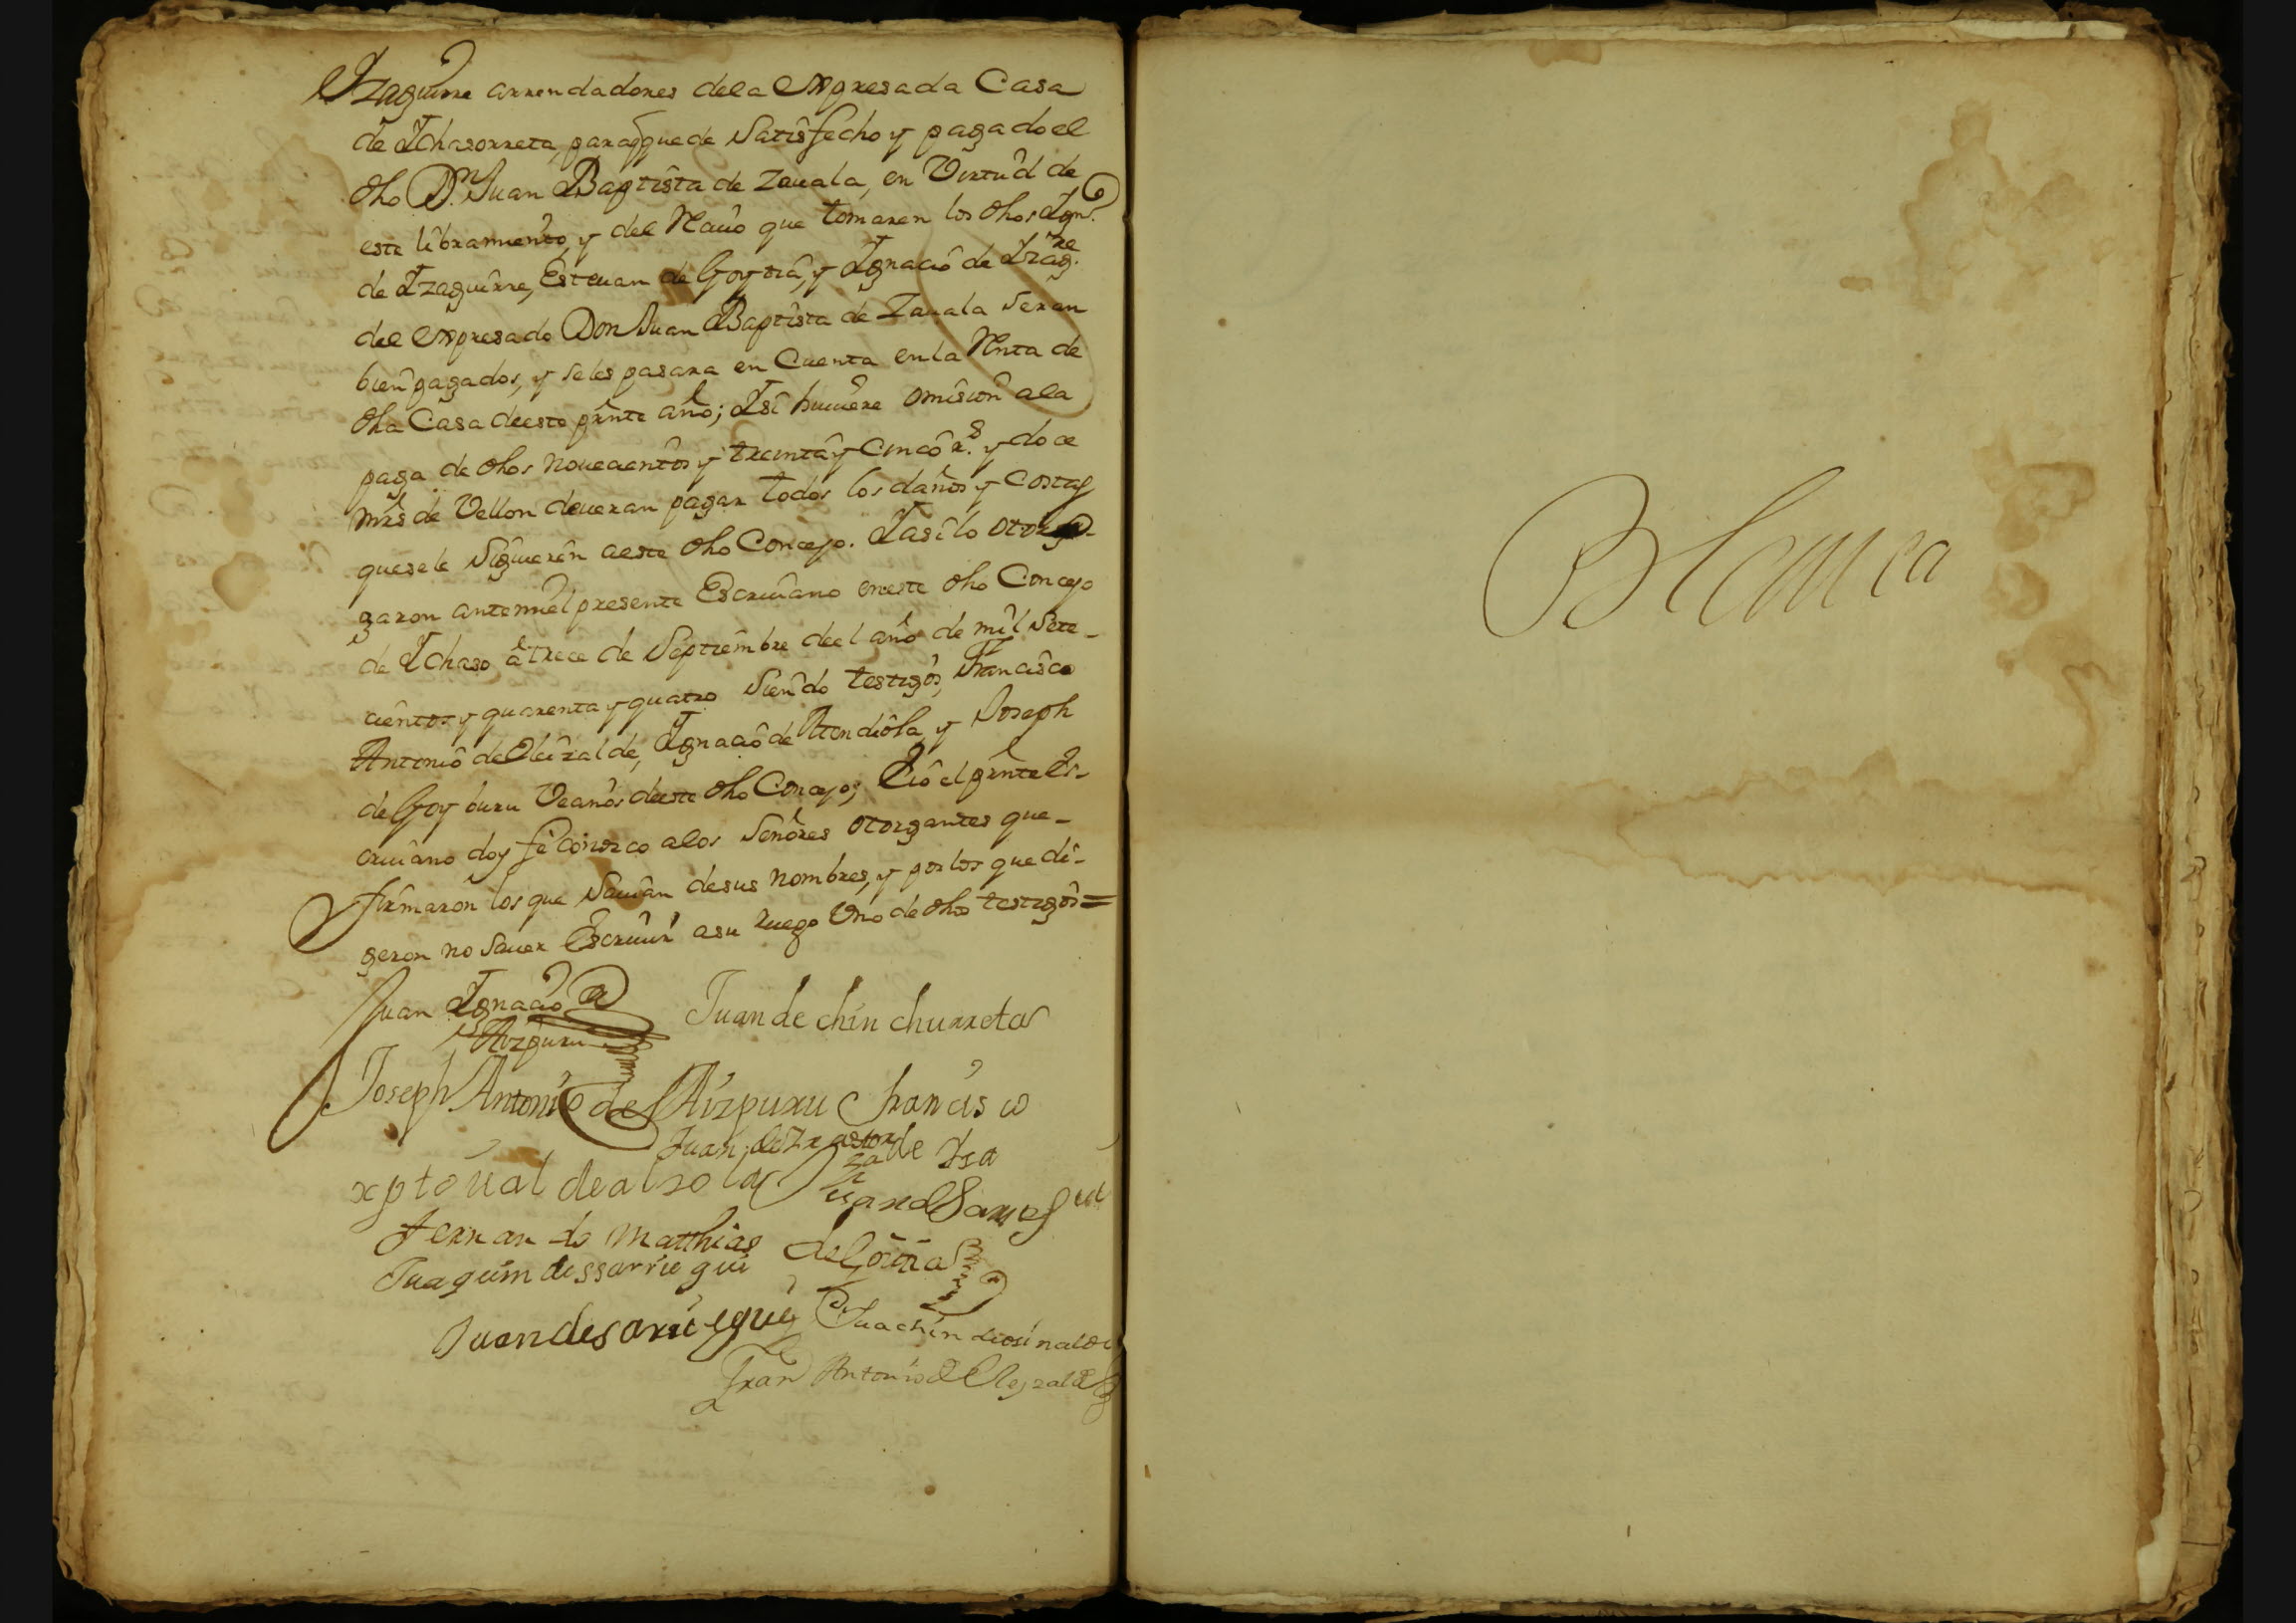 Yzaguirre arrendadores dela expresada Casa
de Ychasorreta, paraq̃ quede Satisfecho y pagado el
dho Dn. Juan Baptista de Zauala, en Virtud de
este libramiento, y del Reciuo que tomaren los dhos Ygno.
de Yzaguirre, Esteuan de Goytia, y Ygnacio de Yzagre.
del expresado Don Juan Baptista de Zauala seran
bien pagados, y seles pasara en Cuenta enla Renta de
dha Casa deeste prãnte año; Y si huuiere omision ala
paga de dhos nouecientos y treinta y cinco rs. y doce
mrs de Vellon deueran pagar todos los daños y costas
quesele siguieren aeste dho Concejo. Y asi lo otor-
garon antemi el presente Escriuano eneste dho Concejo
de Ychaso â trece de Septiembre deel año de mil sete-
cientos y quarenta y quatro siendo testigos, Francisco
Antonio de Eleizalde, Ygnacio de Mendiola, y Joseph
de Goyburu Vecinos deeste dho Concejo; E io el prãnte Es-
criuano doy feê conozco alos Señores otorgantes que-
firmaron los que sauian desus nombres, y por los que di-
geron no sauer Escriuir asu ruego Uno de dhos testigos =
Juan Ygnacio de
Aizpuru
Juan de chin churreta
Joseph Antonio de Aizpuru
Francisco
de Ysa
xptoual de alzola
Fernando Matthias
de Goitia
Juaquim de ssarriegui
Juan de sarriegui
Juachin
Fran Antonio de Eleyzalde
Blanca